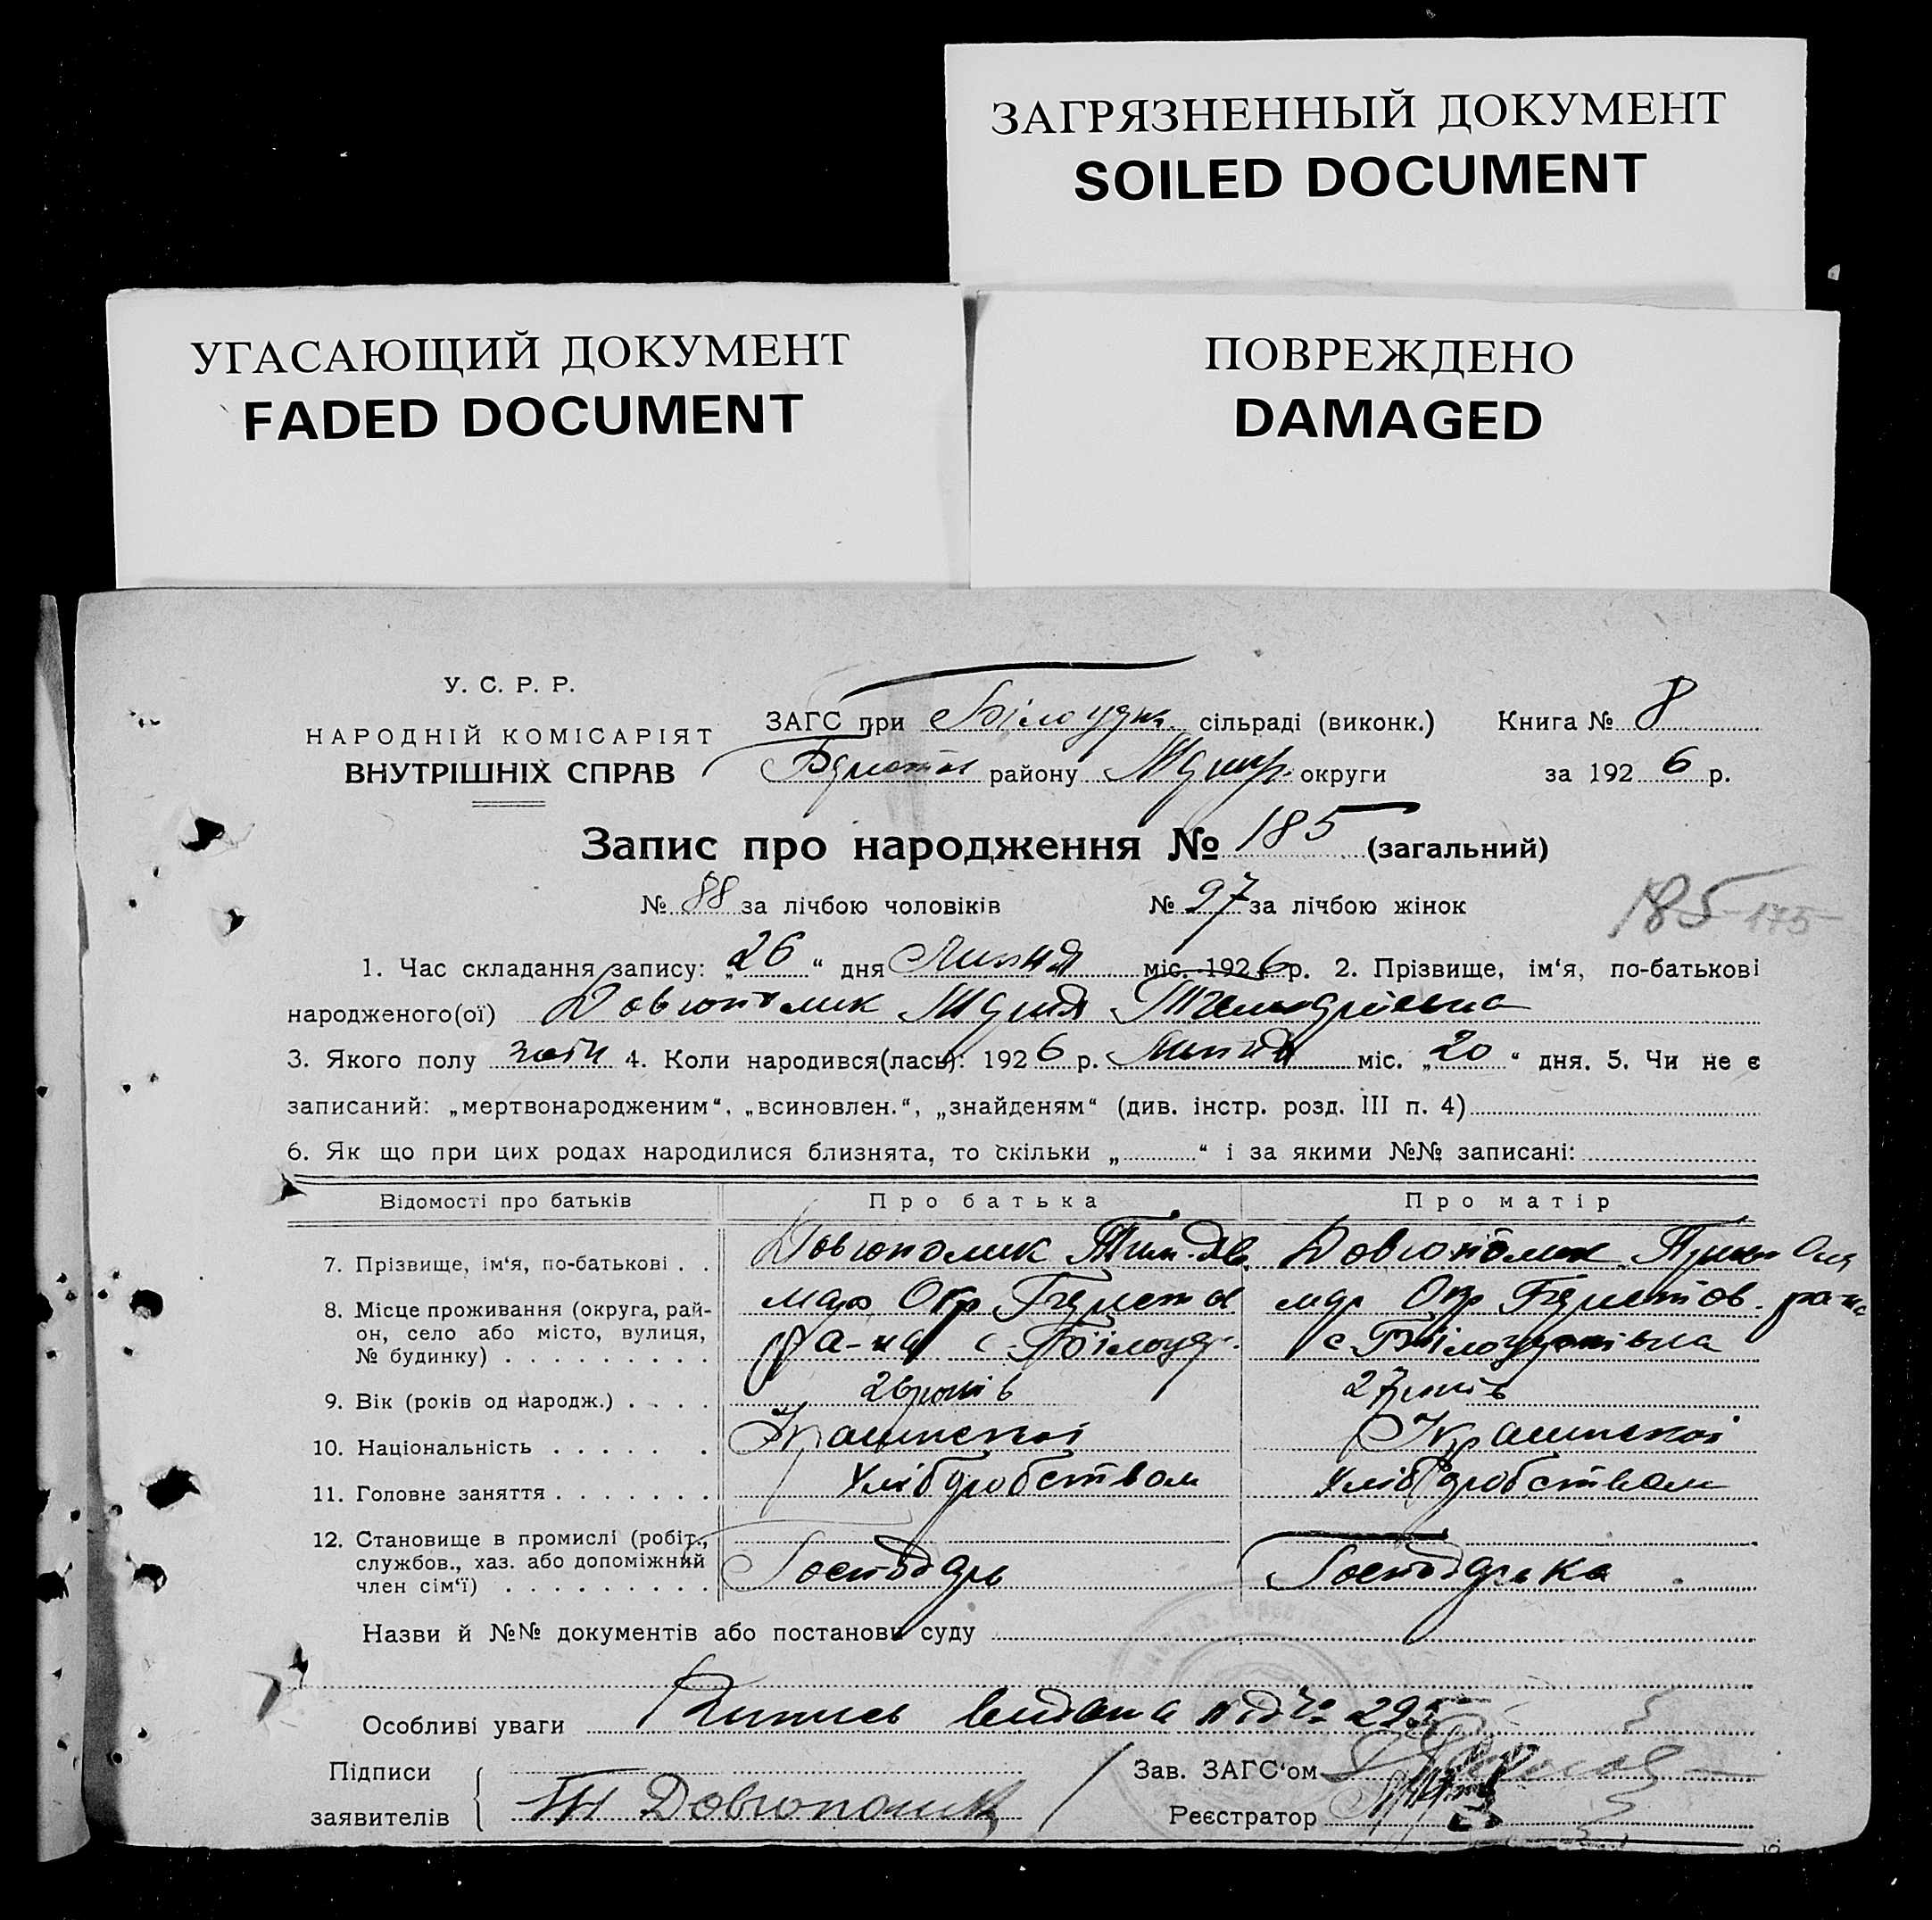 ЗАГРЯЗНЕННЫЙ ДОКУМЕНТ
SOILED DOCUMENT
УГАСАЮЩИЙ ДОКУМЕНТ
FADED DOCUMENT
ПОВРЕЖДЕНО
DAMAGED
У. С. Р. Р.
НАРОДНІЙ КОМІСАРІЯТ
ВНУТРІШНІХ СПРАВ
ЗАГС при сільраді (виконк.) Книга № 8
району округи за 1926 р.
Запис про народження № 185 (загальний)
№ 88 за лічбою чоловіків № 97 за лічбою жінок
185 175
1. Час складання запису: „26“ дня Липня міс. 1926 р. 2. Прізвище, ім‘я, по-батькові
народженого(ої) Довгополик
3. Якого полу жін 4. Коли народився(лась): 1926 р. Липня міс. „20“ дня. 5. Чи не є
записаний: „мертвонародженим“, „всиновлен.“, „знайденям“ (див. інстр. розд. III п. 4)
6. Як що при цих родах народилися близнята, то скільки „ “ і за якими №№ записані:
Відомості про батьків Про батька Про матір
7. Прізвище, ім‘я, по-батькові . . Довгополик Довгополик
8. Місце проживання (округа, рай- Окр Окр
он, село або місто, вулиця, с. с.
№ будинку) . . . . . . . . .
9. Вік (років од народж.) . . . . 26 років 27 років
10. Національність . . . . . . . Української Української
11. Головне заняття . . . . . . . Хліборобством Хліборобством
12. Становище в промислі (робіт.,
службов., хаз. або допоміжний Господарь Господарька
член сім‘ї) . . . . . . . . .
Назви й №№ документів або постанови суду
Особливі уваги Випись видана під № 295
Підписи Зав. ЗАГС‘ом
заявителів Довгополик Реєстратор